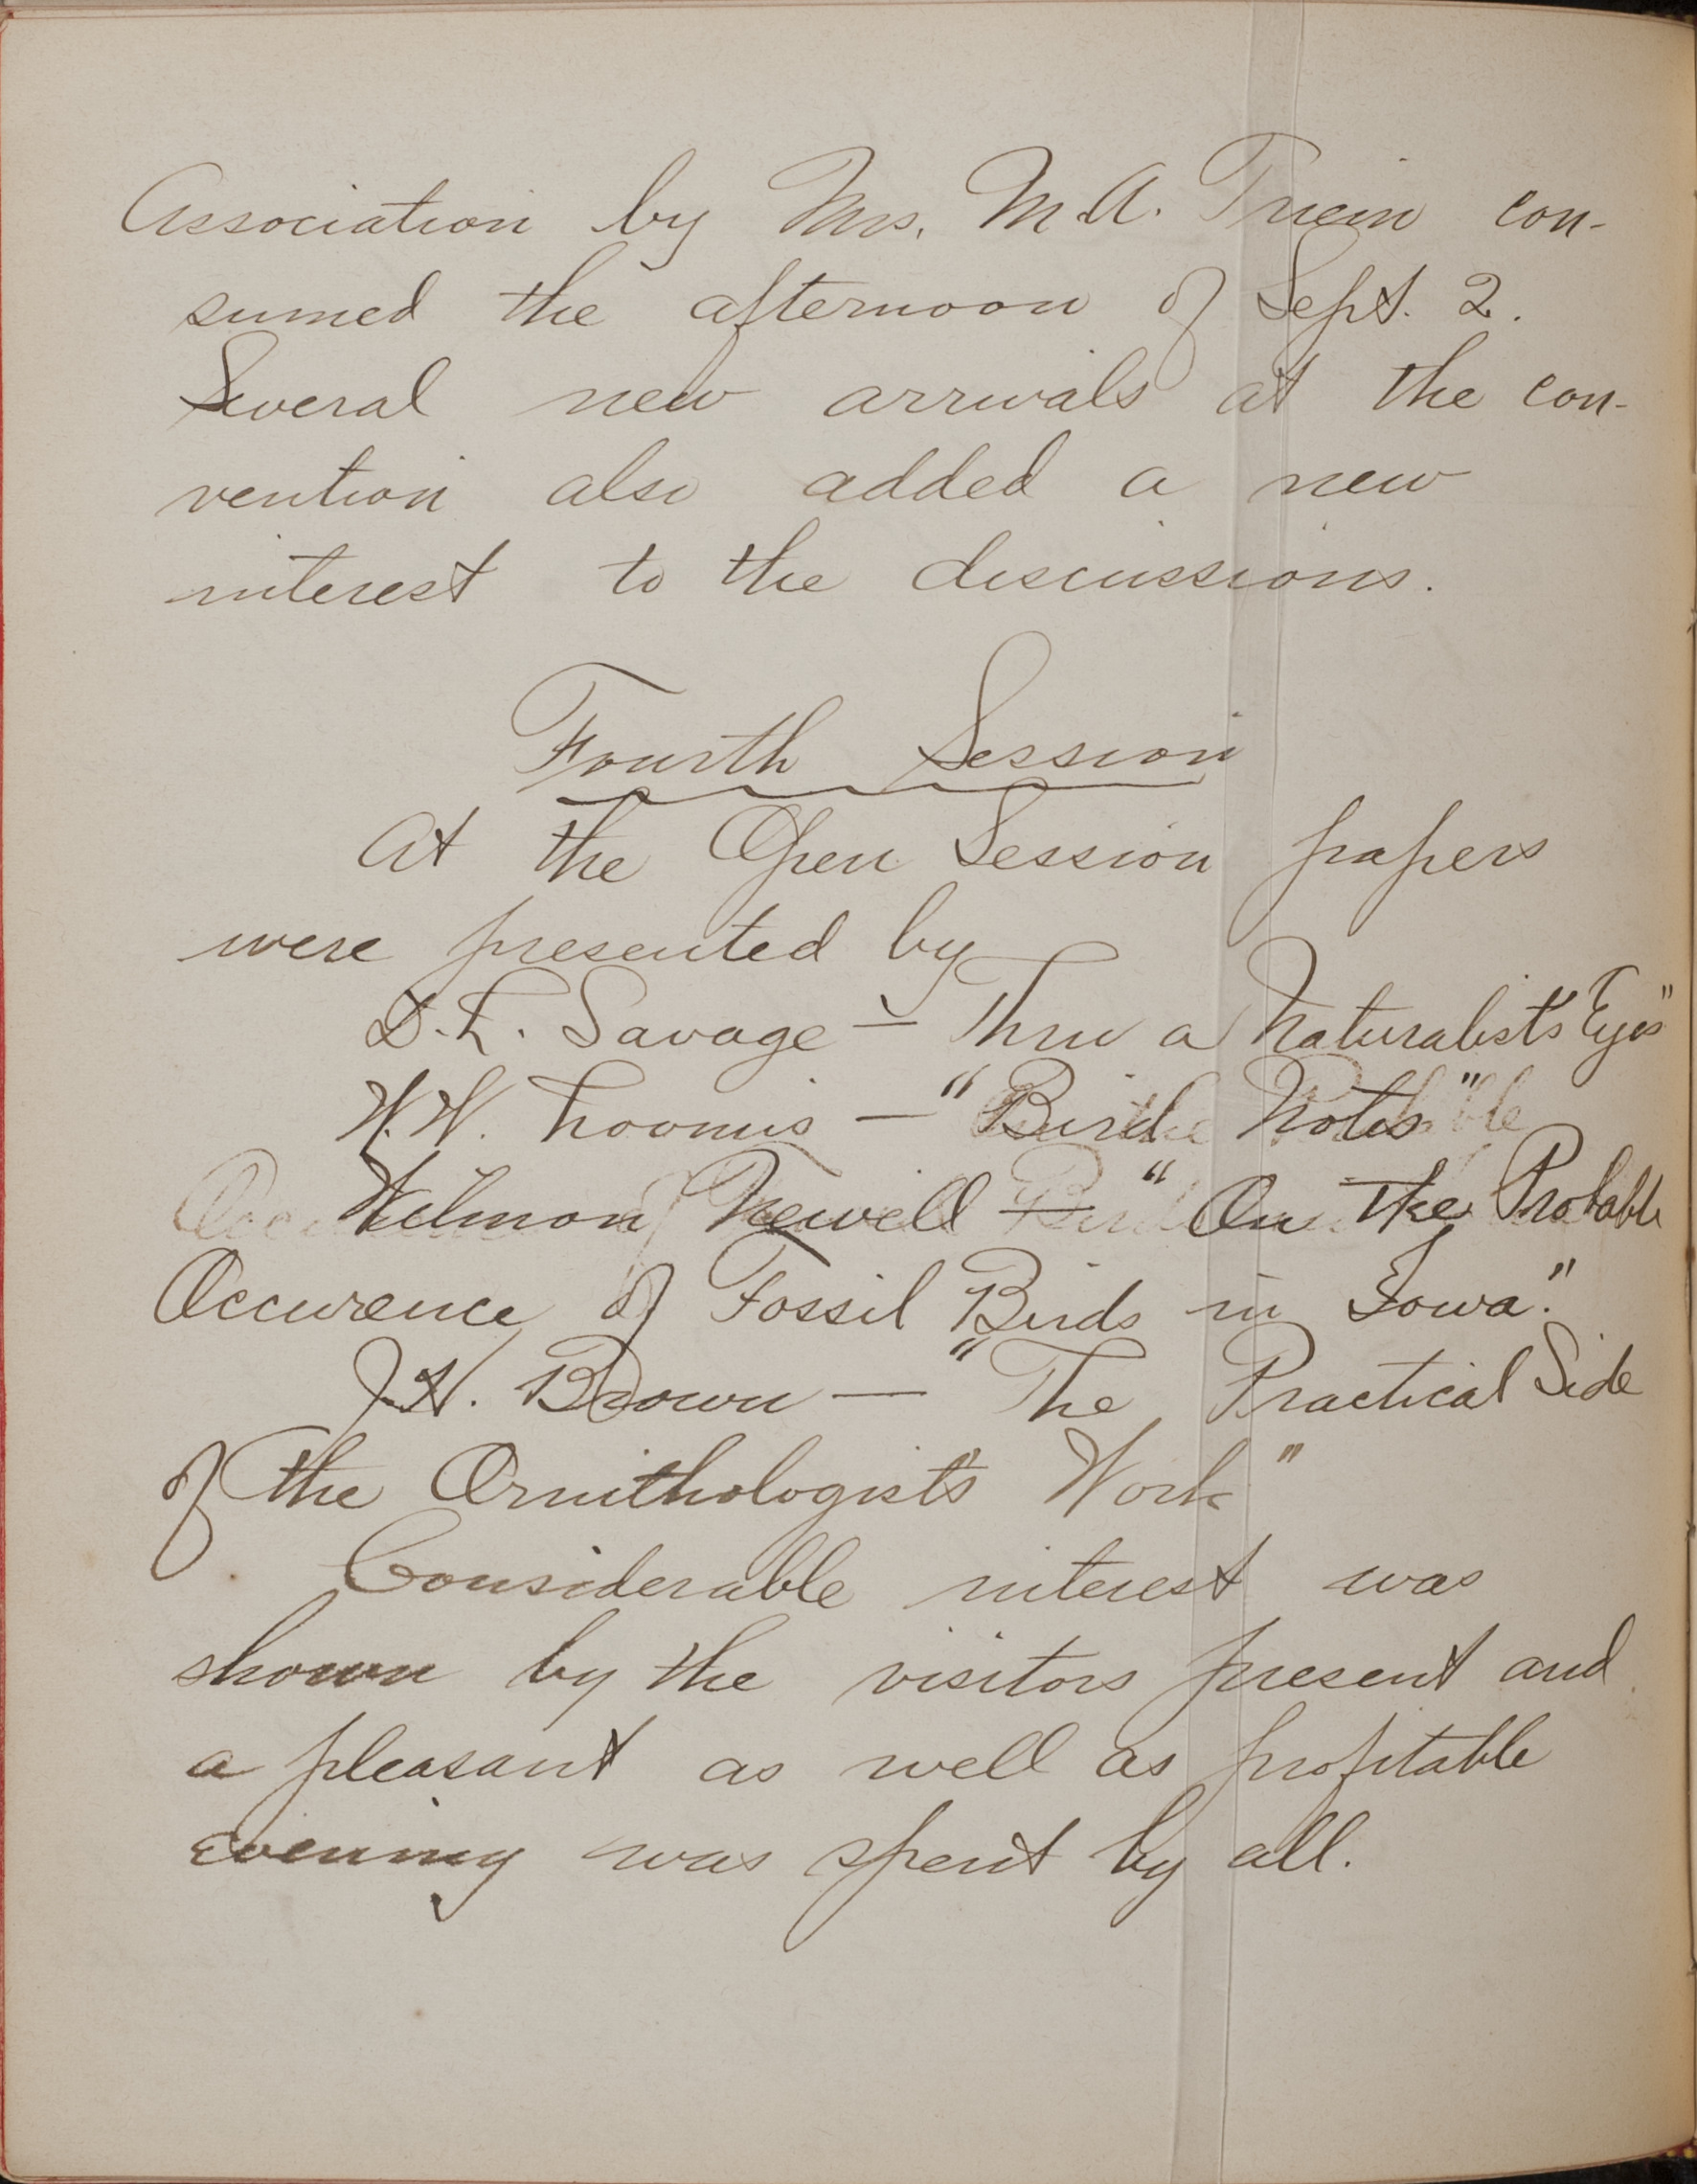 Association by Mrs. M.A. Triem con-
sumed the afternoon of Sept. 2.
Several new arrivals at the con-
vention also added a new
interest to the discussions.
Fourth Session
At the Open Session papers
were presented by
D.L. Savage — Thru a Naturalist's Eyes"
W.W. Loomis — "Bird Notes"
Wilmon Newell — "On the Probable
Occurence of Fossil Birds in Iowa."
J.H. Brown — "The Practical Side
of the Ornithologist's Work"
Considerable interest was
shown by the visitors present and
a pleasant as well as profitable
evening was spent by all.